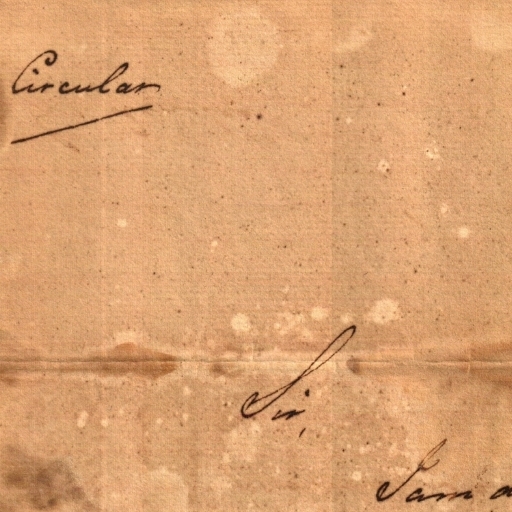 Circular
Sir,
I am